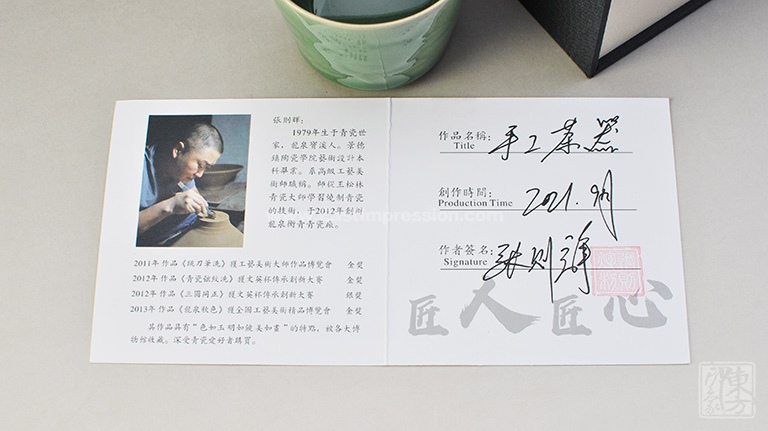 張則輝:
1979年生于青瓷世
家，龍泉寶溪人。景德
鎮陶瓷學院藝術設計本
科畢業。系高級工藝美
術師職稱。師從王松林
青瓷大師學習燒制青瓷
的技術，于2012年創辦
龍泉術青青瓷廠。
2011年作品《跳刀筆洗》獲工藝美術大師作品博覽會 金獎
2012年作品《青瓷 紋洗》獲文英杯傳承創新大賽 金獎
2012年作品《三圓同正》獲文英杯傳承創新大賽 銀獎
2013年作品《龍泉秋色》獲全國工藝美術精品博覽會 金獎
其作品具有“色如玉明如鏡美如畫”的特點，被各大博
物館收藏。深受青瓷愛好者購買。
作品名稱:
Title
手工茶器
創作時間:
Production Time
2021.9月
作者簽名:
Signature
張則輝
匠人匠心
impression.com
東方